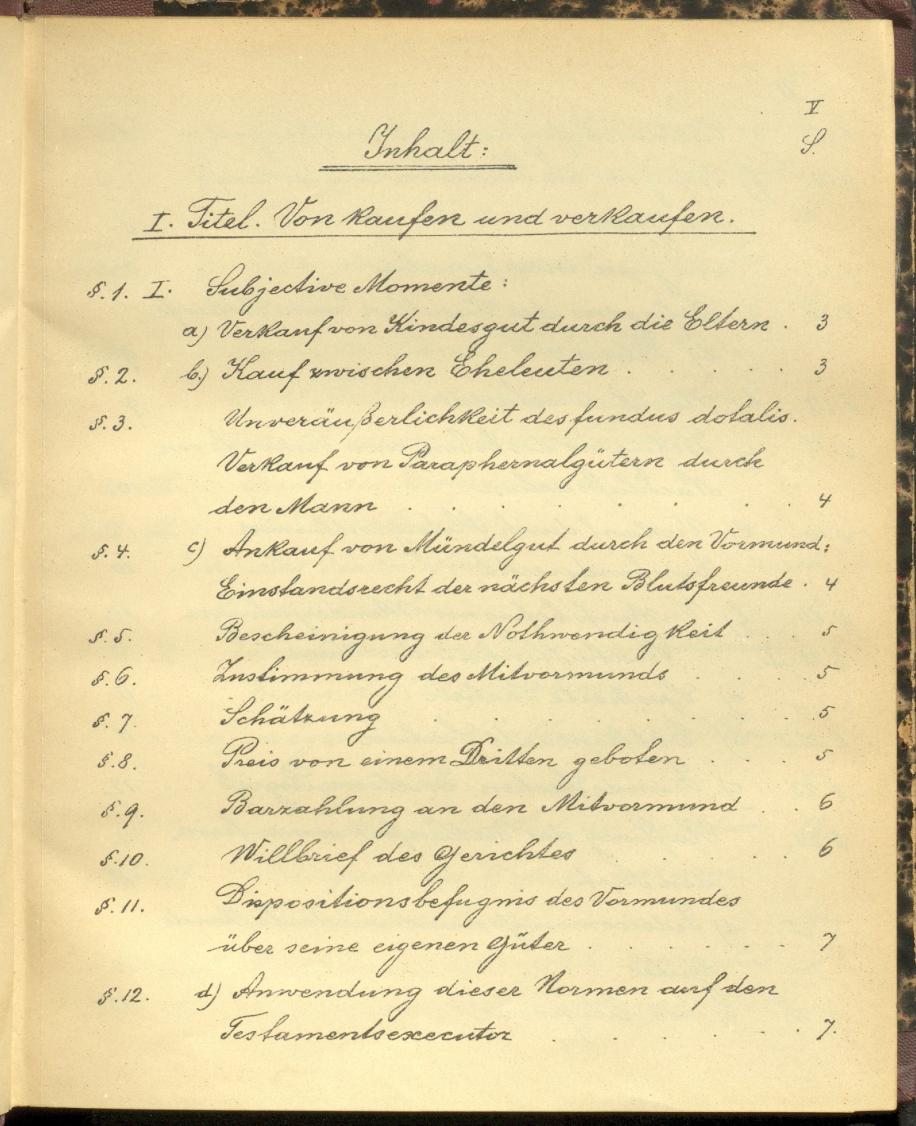 V
Inhalt: S.
I. Titel. Von kaufen und verkaufen.
§. 1. I. Subjective Momente:
a) Verkauf von Kindesgut durch die Eltern . 3
§. 2. b.) Kauf zwischen Eheleuten . . . . . 3
§. 3. Unveräußerlichkeit des fundus dotalis.
Verkauf von Paraphernalgütern durch
den Mann . . . . . . . . 4
§. 4. c) Ankauf von Mündelgut durch den Vormund;
Einstandsrecht der nächsten Blutsfreunde . 4
§. 5. Bescheinigung der Nothwendigkeit . . . 5
§. 6. Zustimmung des Mitvormunds . . . 5
§. 7. Schätzung . . . . . . . 5
§. 8. Preis von einem Dritten geboten . . . 5
§. 9. Barzahlung an den Mitvormund . . 6
§. 10. Willbrief des Gerichtes . . . . . 6
§. 11. Dispositionsbefugnis des Vormundes
über seine eigenen Güter . . . . . 7
§. 12. d) Anwendung dieser Normen auf den
Testamentsexecutor . . . . . 7.